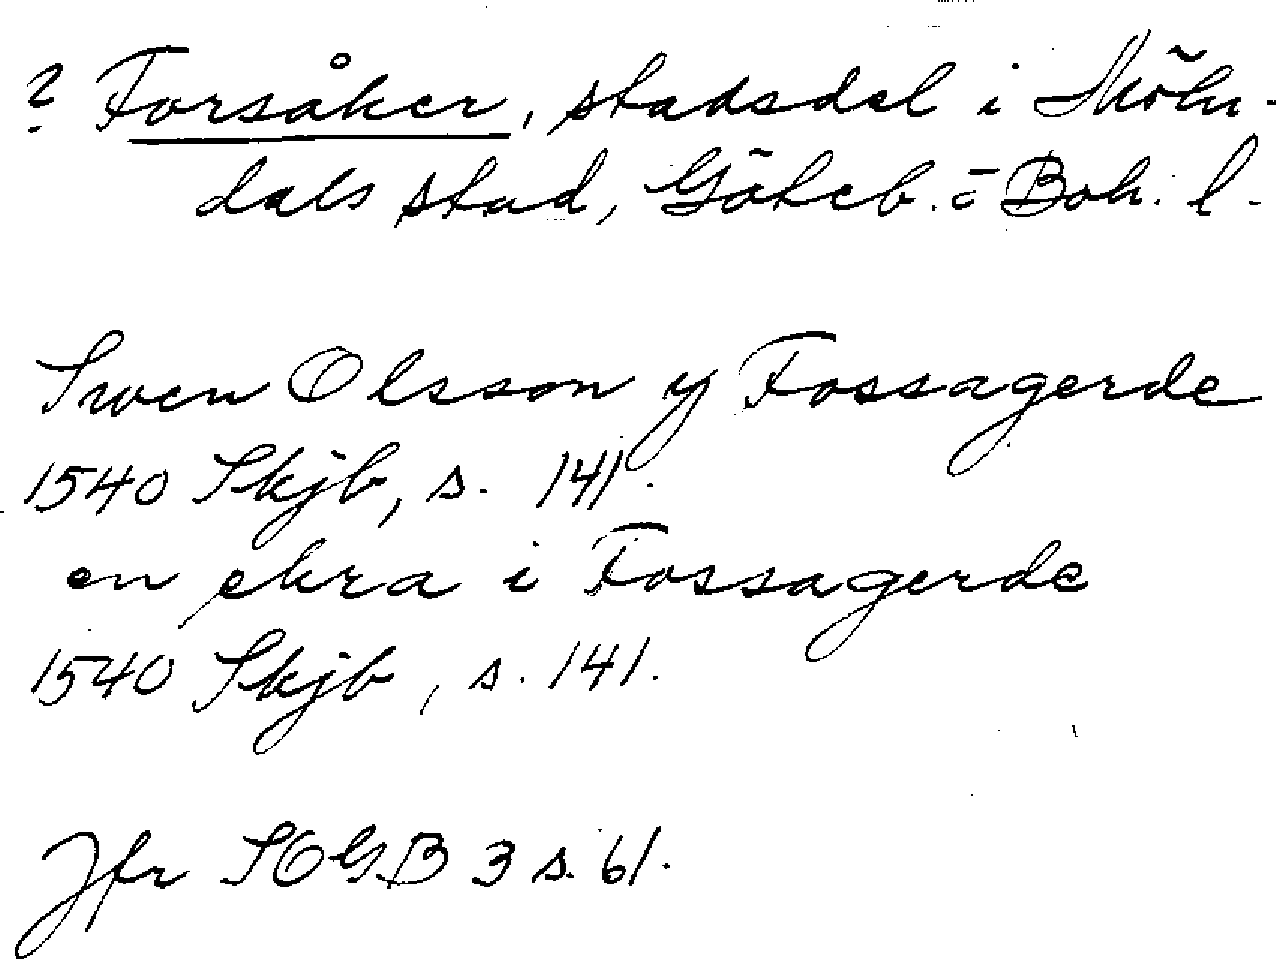 ? Forsåker, stadsdel i Möln-
dals stad, Göteb. o Boh. l.
Swen Olsson y Fossagerde
1540 Skjb, s. 141.
en ekra i Fossagerde
1540 Skjb, s. 141.
Jfr SOGB 3 s. 61.